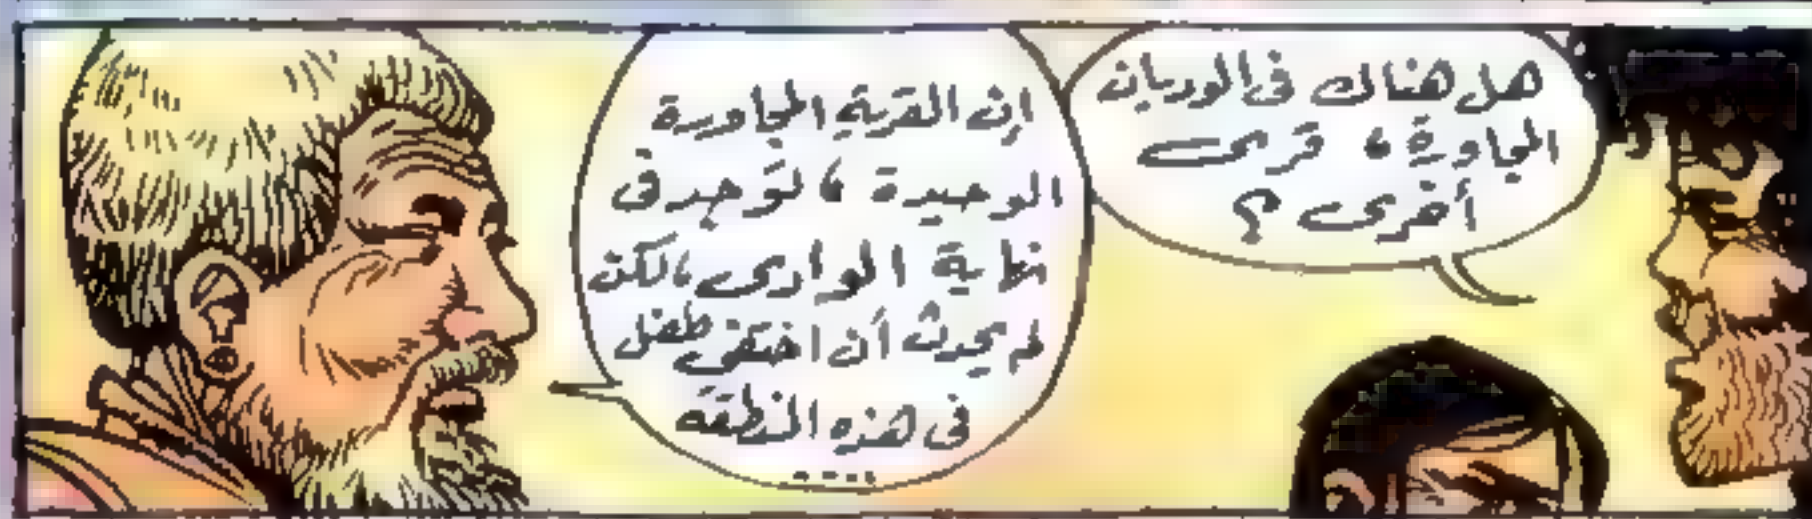 هل هناك فى الوديان
المجاورة ، قرى
أخرى ؟
إن القرية المجاورة
الوحيدة ، توجد فى
نهاية الوادى ، لكن
لم يحدث أن اختفى طفل
فى هذه المنطقة
....